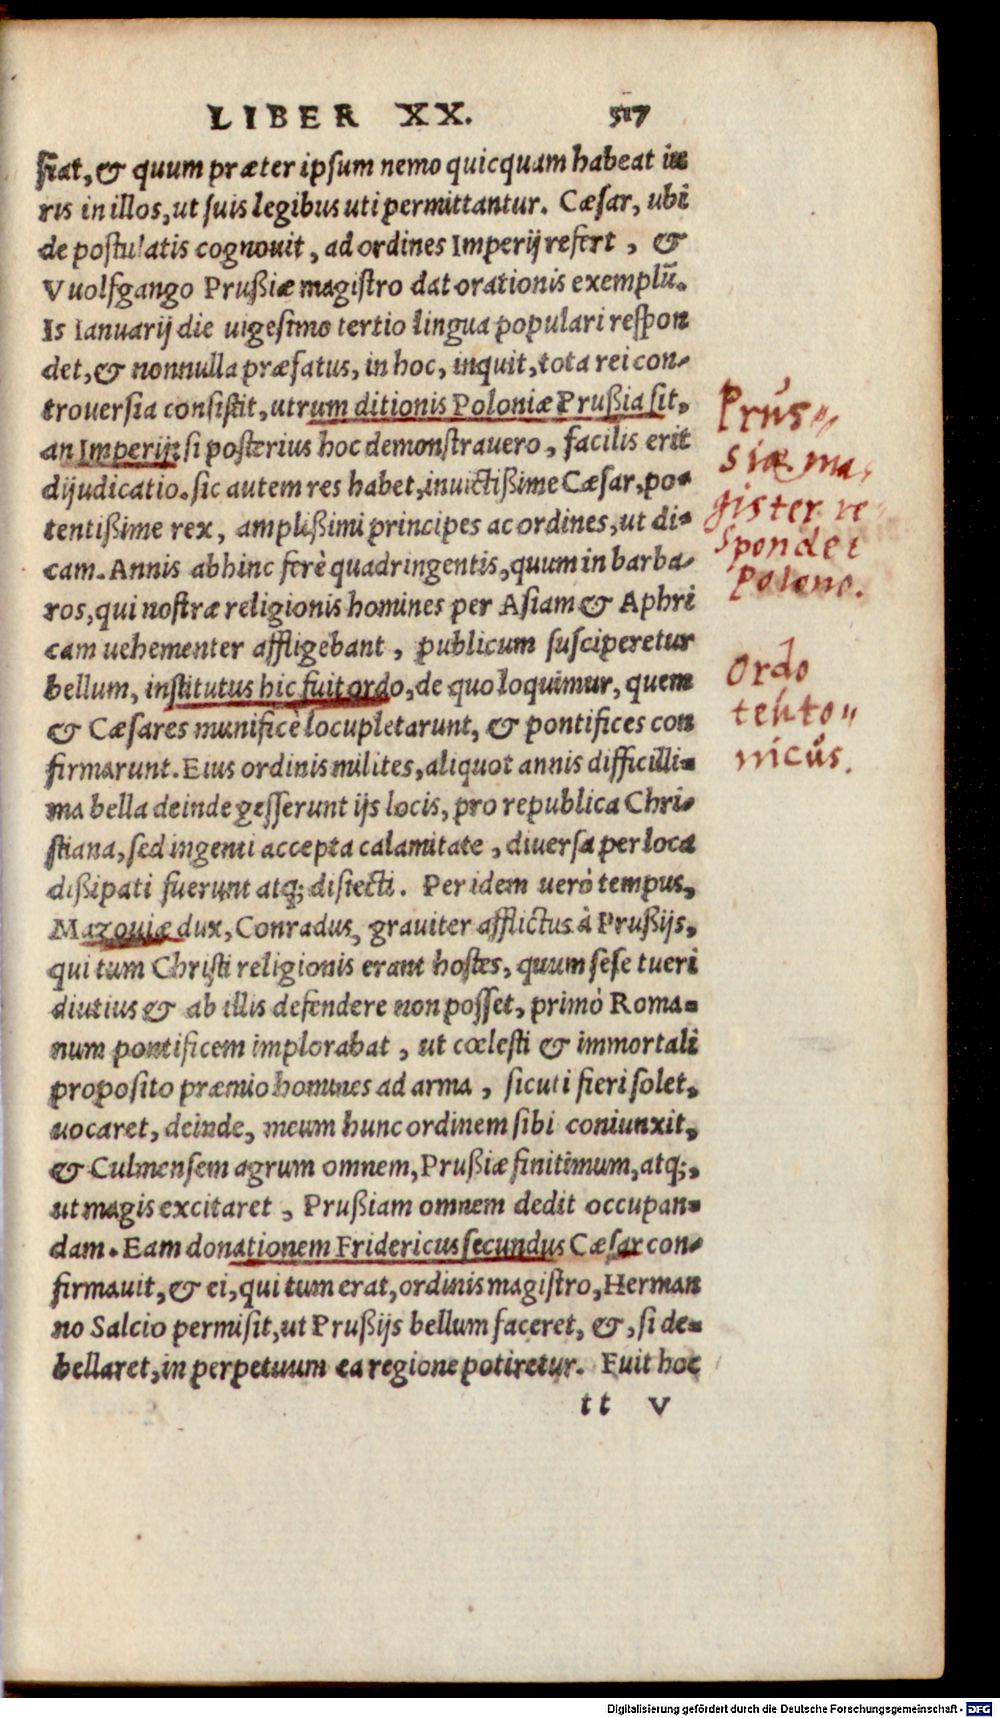 LIBER XX. 517
fiat, & quum præter ipsum nemo quicquam habeat iu
ris in illos, ut suis legibus uti permittantur. Cæsar, ubi
de postulatis cognouit, ad ordines Imperij refert, &
Vuolfgango Prußiæ magistro dat orationis exemplū.
Is Ianuarij die uigesimo tertio lingua populari respon
det, & nonnulla præfatus, in hoc, inquit, tota rei con-
trouersia consistit, utrum ditionis Poloniæ Prußia sit,
an Imperij: si posterius hoc demonstrauero, facilis erit
dijudicatio. sic autem res habet, inuictißime Cæsar, po-
tentißime rex, amplißimi principes ac ordines, ut di-
cam. Annis abhinc ferè quadringentis, quum in barba-
ros, qui nostræ religionis homines per Asiam & Aphri
cam uehementer affligebant, publicum susciperetur
bellum, institutus hic fuit ordo, de quo loquimur, quem
& Cæsares munificè locupletarunt, & pontifices con
firmarunt. Eius ordinis milites, aliquot annis difficilli-
ma bella deinde gesserunt ijs locis, pro republica Chri-
stiana, sed ingenti accepta calamitate, diuersa per loca
dißipati fuerunt atq; disiecti. Per idem uerò tempus,
Mazouiæ dux, Conradus, grauiter afflictus à Prußijs,
qui tum Christi religionis erant hostes, quum sese tueri
diutius & ab illis defendere non posset, primò Roma-
num pontificem implorabat, ut cœlesti & immortali
proposito præmio homines ad arma, sicuti fieri solet,
uocaret, deinde, meum hunc ordinem sibi coniunxit,
& Culmensem agrum omnem, Prußiæ finitimum, atq;,
ut magis excitaret, Prußiam omnem dedit occupan-
dam. Eam donationem Fridericus secundus Cæsar con-
firmauit, & ei, qui tum erat, ordinis magistro, Herman
no Salcio permisit, ut Prußijs bellum faceret, &, si de-
bellaret, in perpetuum ea regione potiretur. Fuit hoc
tt v
Prus-
siæ ma
gister re
spondet
Polono.
Ordo
tehto-
nicus.
Digitalisierung gefördert durch die Deutsche Forschungsgemeinschaft - DFG